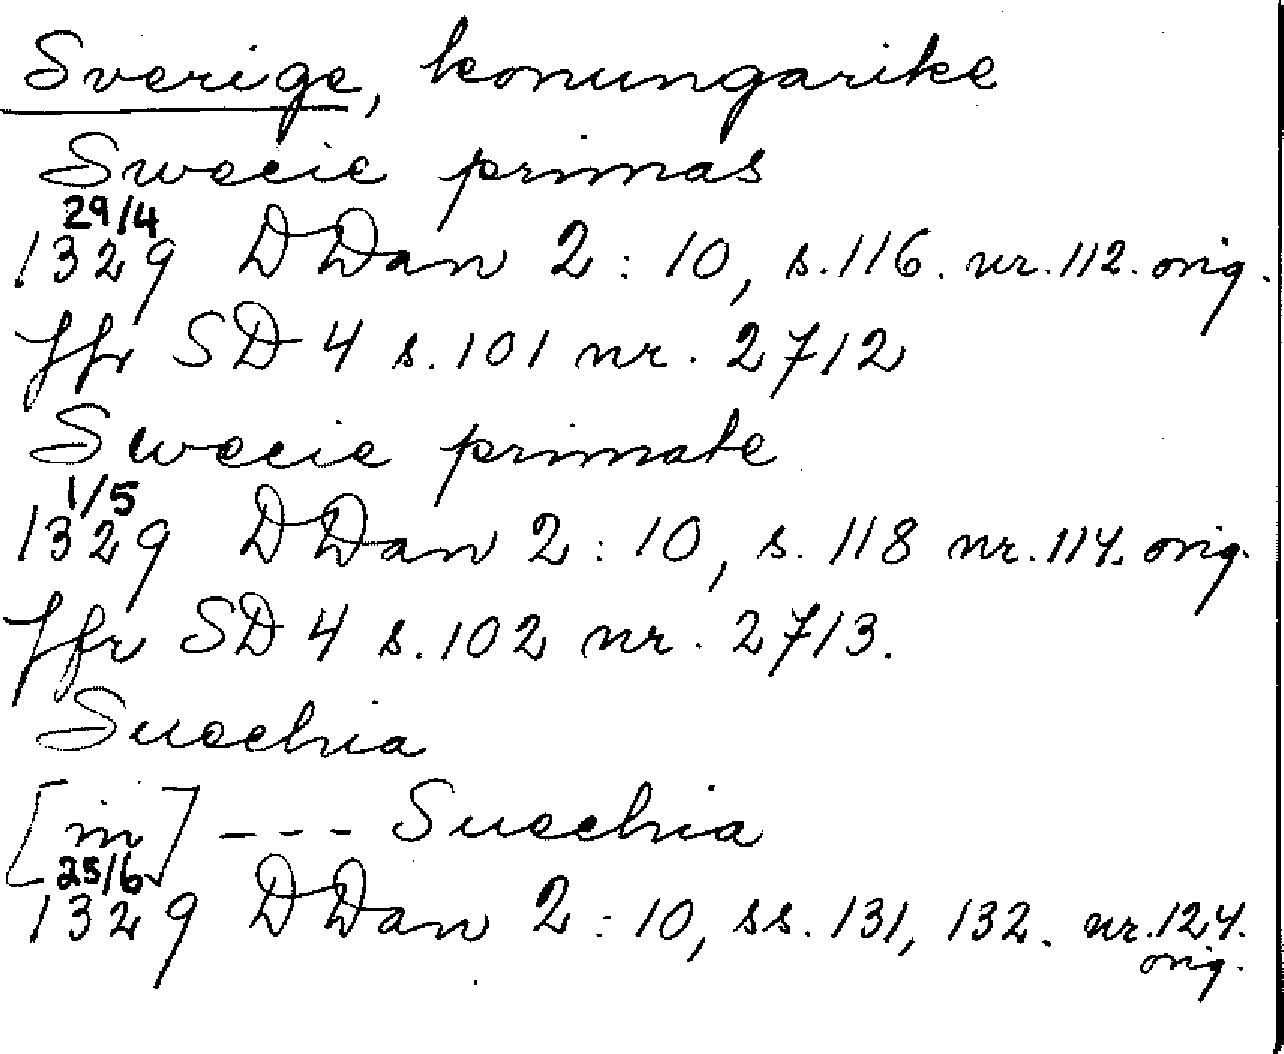 Sverige, konungarike
Swecie primas
29/4
1329 DDan 2:10, s.116. nr.112. orig.
Jfr SD 4 s.101 nr. 2712
Swecie primate
1/5
1329 DDan 2:10, s. 118 nr.114. orig.
Jfr SD 4 s.102 nr. 2713.
Suechia
[in] --- Suechia
25/6
1329 DDan 2:10, ss. 131, 132. nr.124.
orig.